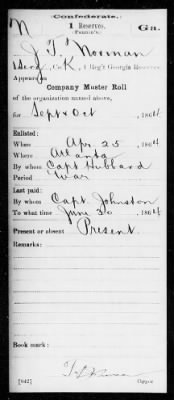 Confederate.
N 1 Reserves, Ga.
(Fannin's.)
J. T. Norman
1 Serg, Co. K, 1 Reg't Georgia Reserves.
Appears on
Company Muster Roll
of the organization named above,
for Sept & Oct, 1864
Enlisted:
When Apr 25, 1864
Where Atlanta
By whom Capt Hubbard
Period War
Last paid:
By whom Capt. Johnston
To what time June 30, 1864
Present or absent Present
Remarks:
Book mark:
(642) Copyist.